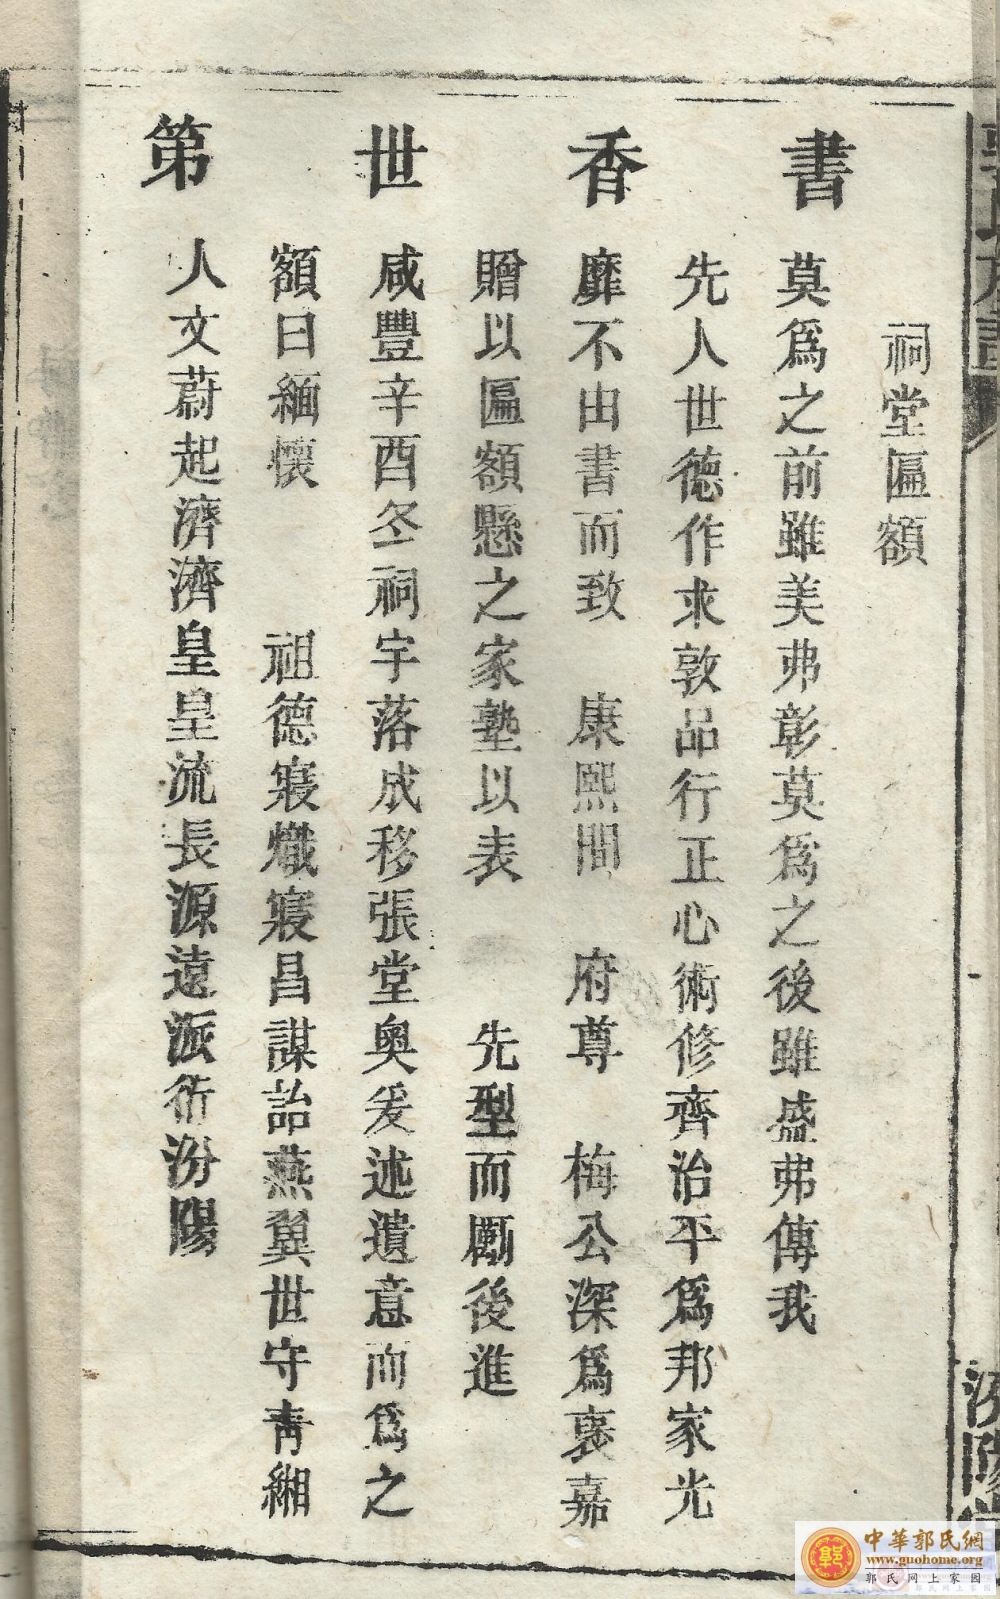 祠堂匾額
書香世第
莫爲之前雖美弗彰莫爲之後雖盛弗傳我
先人世德作求敦品行正心術修齊治平爲邦家光
靡不由書而致 康熙間 府尊 梅公深爲襃嘉
贈以匾額懸之家塾以表 先型而勵後進
咸豐辛酉冬祠宇落成移張堂奥爰述遺意而爲之
額曰緬懷 祖德寖熾寖昌謀詒燕翼世守青緗
人文蔚起濟濟皇皇流長源遠派衍汾陽
郭氏族譜
汾陽堂
中華郭氏網
www.guohome.org
郭氏网上家园